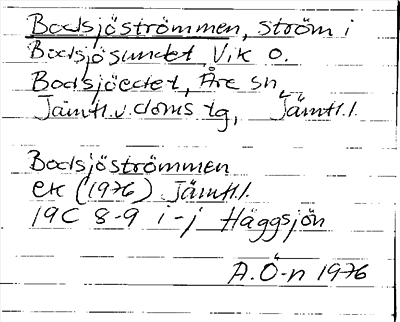 Bodsjöströmmen, ström i
Bodsjösundet, V.k o.
Bodsjöedet, Åre sn,
Jämtl.v.doms tg, Jämtl.l.
Bodsjöströmmen
ek (1976) Jämtl.l.
19C 8-9 i-j Häggsjön
A.Ö-n 1976